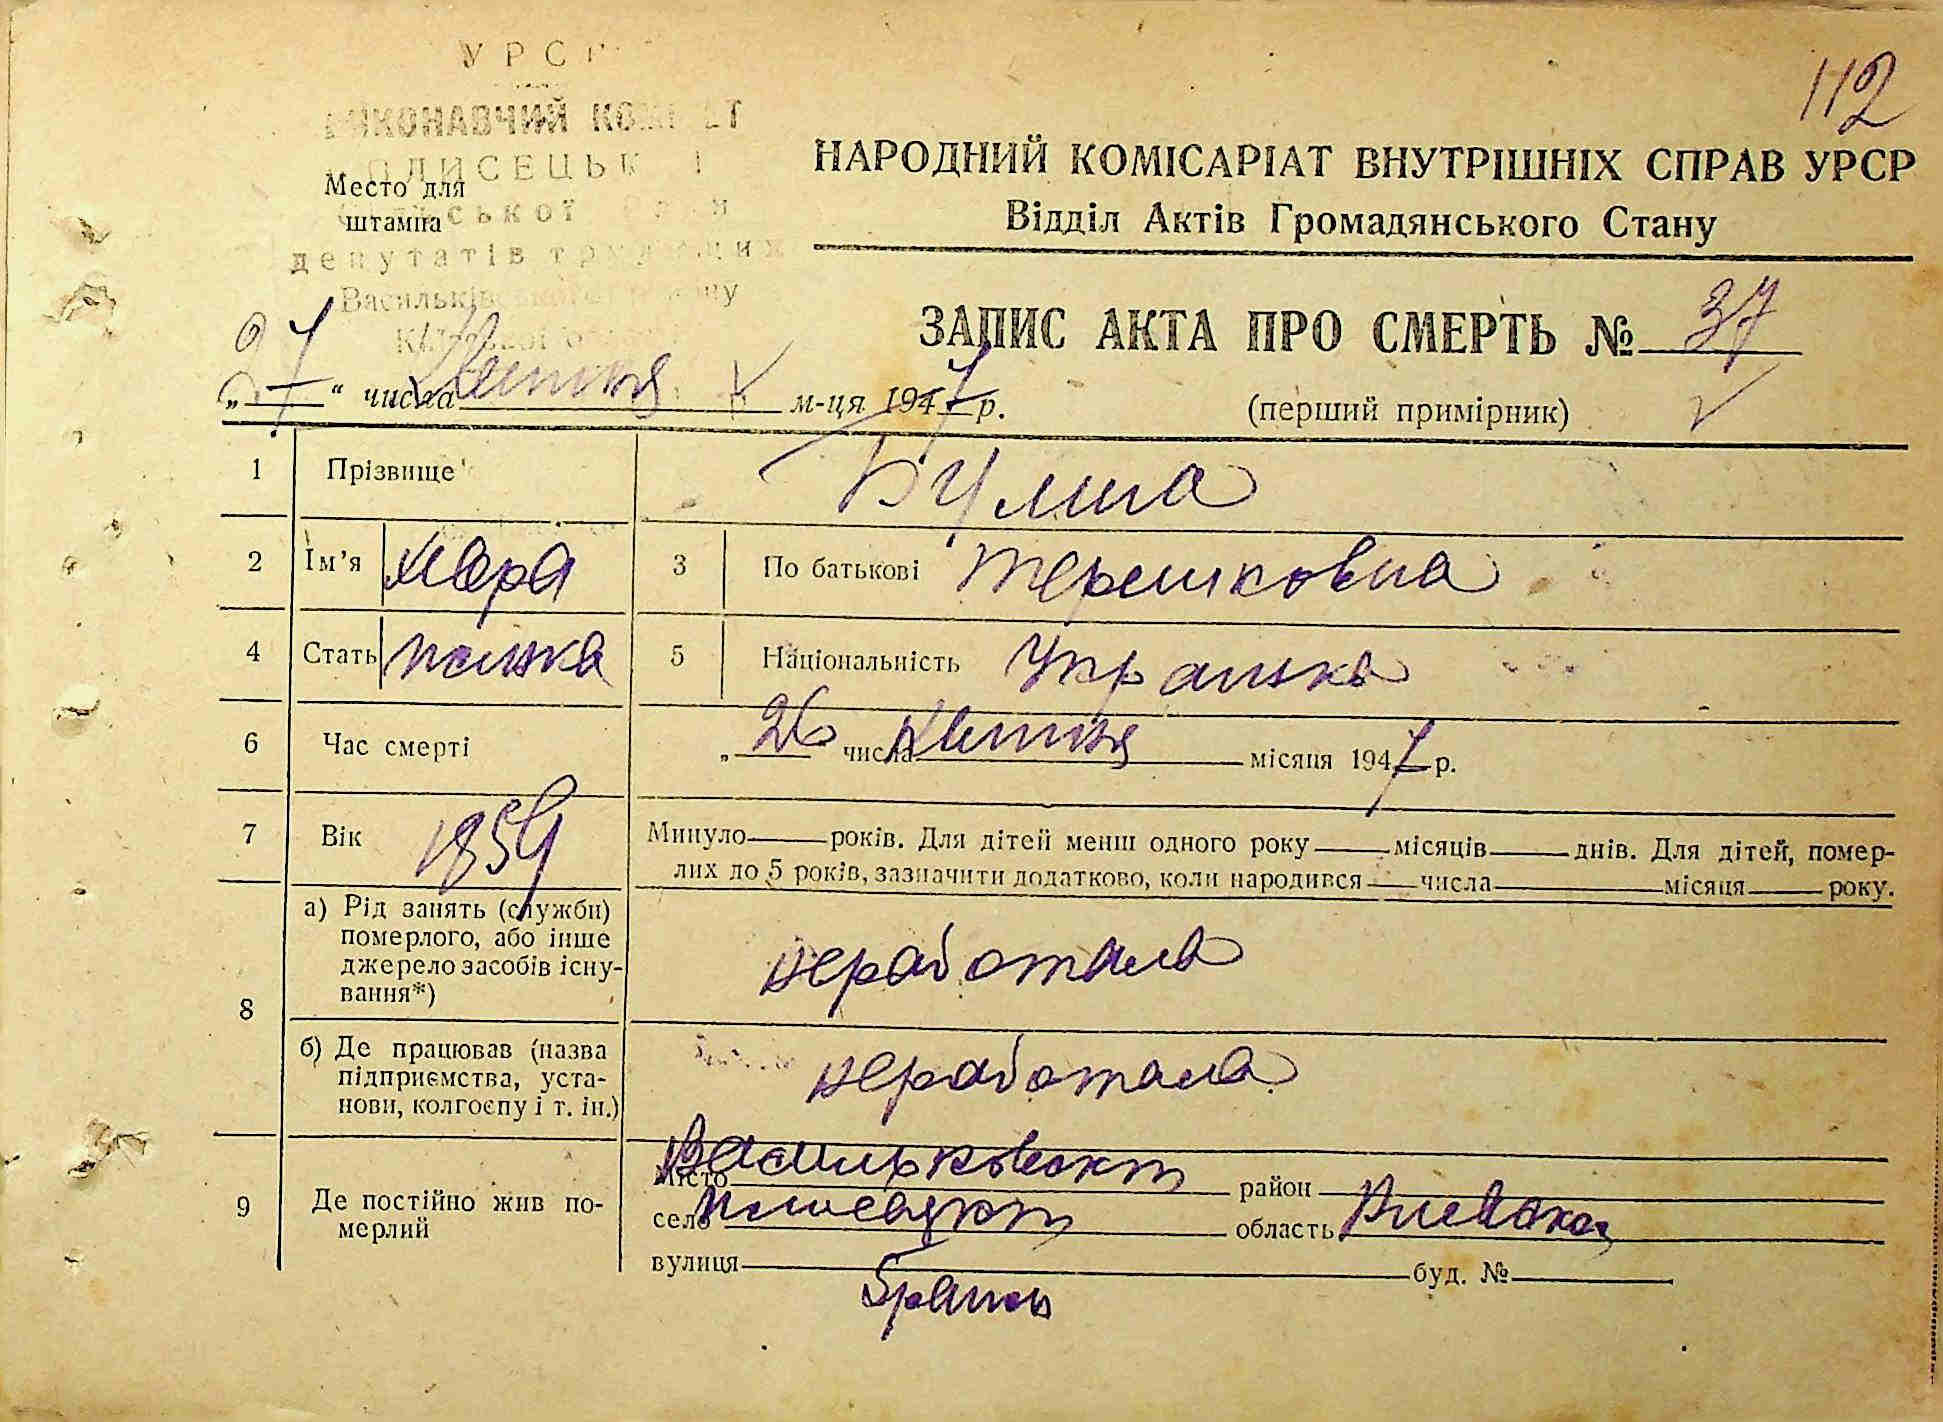 112
УРСР
ВИКОНАВЧИЙ КОМІТЕТ
Место для
штампа
депутатів трудящих
НАРОДНИЙ КОМІСАРІАТ ВНУТРІШНІХ СПРАВ УРСР
Відділ Актів Громадянського Стану
ЗАПИС АКТА ПРО СМЕРТЬ № 37
„27“ числа Квітня м-ця 1947 р.
(перший примірник)
1 Прізвище Булига
2 Ім'я 3 По батькові Терешковна
4 Стать 5 Національність Українка
6 Час смерті „26 числа Квітня місяця 1947 р.
7 Вік 1859 Минуло — років. Для дітей менш одного року — місяців — днів. Для дітей, помер-
лих до 5 років, зазначити додатково, коли народився — числа — місяця — року.
8 а) Рід занять (служби)
померлого, або інше
джерело засобів існу-
вання*)
неработала
б) Де працював (назва
підприємства, уста-
нови, колгоспу і т. ін.)
неработала
9 Де постійно жив по-
мерлий
місто Васильковский район
село область Киевская
вулиця буд. №